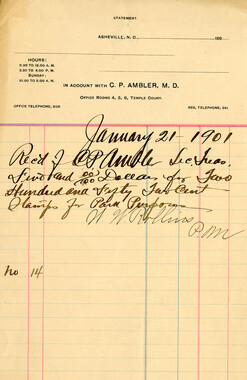 STATEMENT.
ASHEVILLE, N. C., 190
HOURS:
9.30 TO 12.00 A. M.
2.30 TO 4.00 P. M.
SUNDAY:
10.00 TO 2.00 P. M.
IN ACCOUNT WITH C. P. AMBLER, M. D.
OFFICE ROOMS 4, 5, 6, TEMPLE COURT.
OFFICE TELEPHONE, RES. TELEPHONE, 241
January 21 1901
Rec'd of C P Ambler Sec Treas.
Five and 00/100 Dollars for Two
Hundred and Fifty Two Cent
Stamps for Park Purposes
W W Rollins
P.M
No 14